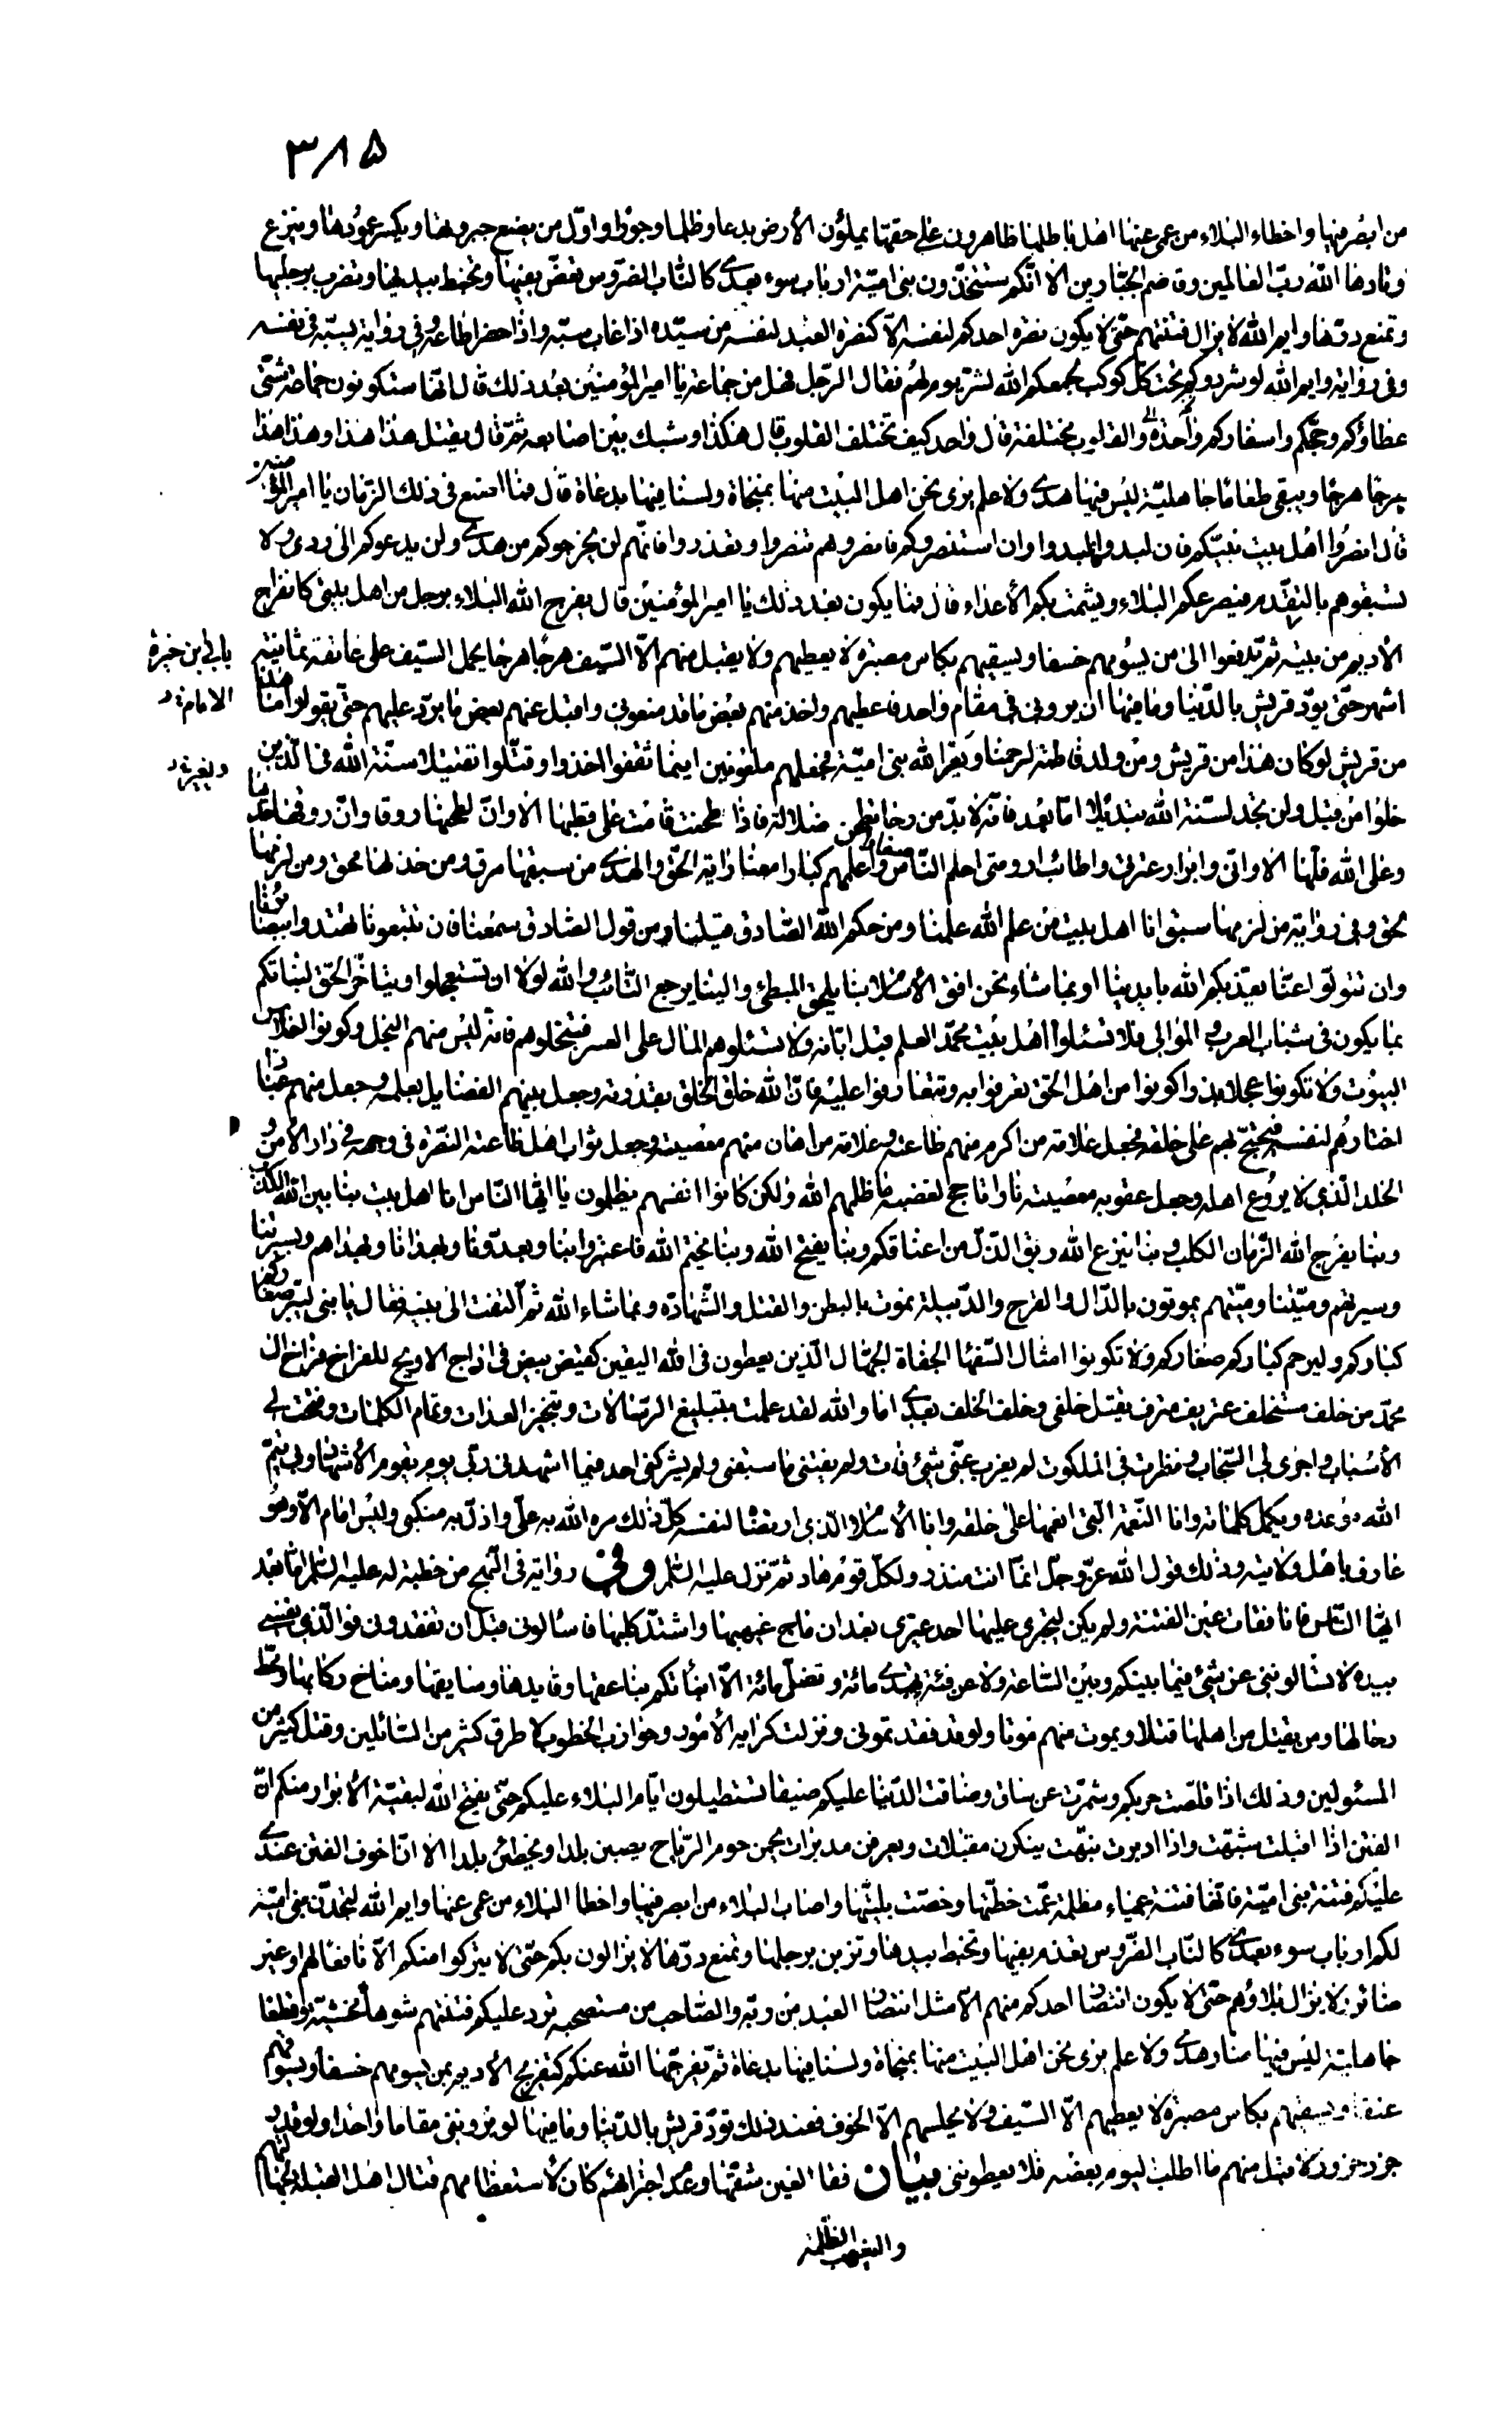 ٣٨٥
من ابصر فيها واخطاء البلاء من عمى عنها اهل باطلها ظاهرون على حقها يملؤن الأرض بدعا وظلما وجورا واوّل من يضع جبروتها ويكسر عمودها وينزع
وتادها الله ربّ العالمين وقاصم الجبّارين الا انّكم ستجدّون بنى اميّة ارباب سوء بعدى كالنّاب الضّروس تعضّ بفيها وتخبط بيديها وتضرب برجليها
وتمنع درّها وايم الله لا يزال فتنتهم حتّى لا يكون نصرة احدكم لنفسه الّا كنصرة العبد لنفسه من سيّده اذا غاب سبّه واذا حضر اطاعه وفى رواية يسبّه فى نفسه
وفى رواية وايم الله لو شردوكم تحت كلّ كوكب لجمعكم الله لشرّ يوم لهم فقال الرّجل فهل من جماعة يا امير المؤمنين بعد ذلك قال انّها ستكونون جماعة شتّى
عطاؤكم وحجّكم واسفاركم واحدة والقلوب مختلفة قال واحد كيف تختلف القلوب قال هكذا وشبك بين اصابعه ثمّ قال يقتل هذا هذا وهذا هذا
هرجا هرجا ويبقى طغاما جاهليّة ليس فيها هدى ولا علم يرى نحن اهل البيت منها بمنجاة ولسنا فيها بدعاة قال فما اصنع فى ذلك الزّمان يا امير المؤمنين
قال انصروا اهل بيت نبيّكم فان لبدوا فالبدوا وان استنصروكم فانصروهم تنصروا وتعذروا فانّهم لن يخرجوكم من هدى ولن يدعوكم الى ردى ولا
تسبقوهم بالتقدّم فيصرعكم البلاء ويشمت بكم الأعداء قال فما يكون بعد ذلك يا امير المؤمنين قال يفرج الله البلاء برجل من اهل بيتى كانفراج
الأديم من بيته ثمّ يدفعوا الى من يسومهم خسفا ويسقيهم بكاس مصبرة لا يعطيهم ولا يقبل منهم الّا السّيف هرجا هرجا يحمل السّيف على عاتقه ثمانية
بابى ابن خيرة
الاماء
اشهر حتّى يودّ قريش بالدّنيا وما فيها ان يرونى فى مقام واحد فاعطيهم واخذ منهم بعض ما قد منعونى واقبل عنهم بعض ما يردّ عليهم حتّى يقولوا ما هذا
من قريش لو كان هذا من قريش ومن ولد فاطمة لرحمنا ويغر الله بنى اميّة فجعلهم ملعونين اينما ثقفوا اخذوا وقتّلوا تقتيلا سنّة الله فى الّذين
خلوا من قبل ولن تجد لسنّة الله تبديلا امّا بعد فانّه لا بدّ من رحا تطحن ضلالة فاذا طحنت قامت على قطبها الا وانّ لطحنها روقا وانّ روقها حدّها
وعلى الله فلّها الا وانّى وابرار عترتى واطائب ارومتى احلم النّاس صغارا واعلمهم كبارا معنا راية الحقّ والهدى من سبقها مرق ومن خذلها محق ومن لزمها
لحق وفى رواية من لزمها سبق انا اهل بيت من علم الله علمنا ومن حكم الله الصّادق قيلنا ومن قول الصّادق سمعنا فان تتبعونا تهتدوا ببصائرنا
وان تتولّوا عنّا يعذّبكم الله بايدينا او بما شاء نحن افق الأسلام بنا يلحق المبطئ والينا يرجع التّائب والله لولا ان تستعجلوا ويتاخّر الحقّ لنبّاتكم
بما يكون فى شباب العرب والموالى فلا تسئلوا اهل بيت محمّد العلم قبل ابّانه ولا تسئلوهم المال على العسر فتبخلوهم فانّه ليس منهم البخل وكونوا احلاس
البيوت ولا تكونوا عجلا بذرا كونوا من اهل الحقّ تعرفوا به وتتعارفوا عليه فانّ الله خلق الخلق بقدرته وجعل بينهم الفضائل بعلمه وجعل منهم عبادا
اختارهم لنفسه ليحتجّ بهم على خلقه فجعل علامة من اكرم منهم طاعته وعلامة من اهان منهم معصيته وجعل ثواب اهل طاعته النّضرة فى وجهه فى دار الأمن و
الخلد الّذى لا يروع اهله وجعل عقوبة معصيته نارا تاجج لغضبه ما ظلمهم الله ولكن كانوا انفسهم يظلمون يا ايّها النّاس انا اهل بيت بنا بيّن الله الكذب
وبنا يفرج الله الزّمان الكلب وبنا ينزع الله ربق الذّلّ من اعناقكم وبنا يفتح الله وبنا يختم الله فاعتبروا بنا وبعدوّنا وبهدانا وبهداهم وبسيرتنا
وسيرتهم وميّتنا وميّتهم يموتون بالدّال والقرح والدّبيلة نموت بالبطن والقتل والشّهادة وبما شاء الله ثمّ التفت الى بنيه فقال يا بنى ليبرّ صغاركم
كباركم وليرحم كباركم صغاركم ولا تكونوا امثال السّفهاء الجفاة الجهّال الّذين لا يعطون فى الله اليقين كقيض بيض فى اداح الا ويح للفراخ فراخ ال
محمّد من خلف مستخلف عتريف مترف يقتل خلفى وخلف الخلف بعدى اما والله لقد علمت بتبليغ الرّسالات وتنجيز العدات وتمام الكلمات وفتحت لى
الأسباب واجرى لى السّحاب ونظرت فى الملكوت لم يعزب عنّى شئ فات ولم يفتنى ما سبقنى ولم يشركنى احد فيما اشهدنى ربّى يوم يقوم الأشهاد وبى يتمّ
الله وعده ويكمل كلماته وانا النّعمة الّتى انعمها على خلقه وانا الأسلام الّذى ارتضاه لنفسه كلّ ذلك من الله به علىّ واذلّ به منكبى وليس امام الّا وهو
عارف باهل ولايته وذلك قول الله عزّ وجلّ انّما انت منذر ولكلّ قوم هاد ثمّ نزل عليه السّلم وفى رواية فى النّهج من خطبة له عليه السّلم امّا بعد
ايّها النّاس فانا فقات عين الفتنة ولم يكن ليجترى عليها احد غيرى بعد ان ماج غيهبها واشتدّ كلبها فاسالونى قبل ان تفقدونى فو الّذى نفسى
بيده لا تسالوننى عن شئ فيما بينكم وبين السّاعة ولا عن فئة تهدى مائة وتضلّ مائة الّا انبأتكم بناعقها وقايدها وسايقها ومناخ ركابها ومحطّ
رحالها ومن يقتل من اهلها قتلا ويموت منهم موتا ولو قد فقدتمونى ونزلت كرايه الأمور وحوازب الخطوب لاطرق كثير من السّائلين وفشل كثير من
المسئولين وذلك اذا قلصت حربكم وشمّرت عن ساق وضاقت الدّنيا عليكم ضيقا تستطيلون ايّام البلاء عليكم حتّى يفتح الله لبقيّة الأبرار منكم انّ
الفتن اذا اقبلت شبّهت واذا ادبرت نبّهت ينكرن مقبلات ويعرفن مدبرات يحمن حوم الرّياح يصبن بلدا ويخطئن بلدا الا انّ اخوف الفتن عندى
عليكم فتنة بنى اميّة فانّها فتنة عمياء مظلمة عمّت خطّتها وخصّت بليّتها واصاب البلاء من ابصر فيها واخطا البلاء من عمى عنها وايم الله لتجدنّ بنى اميّة
لكم ارباب سوء بعدى كالنّاب الضّروس تعذم بفيها وتخبط بيدها وتزبن برجلها وتمنع درّها لا يزالون بكم حتّى لا يتركوا منكم الّا نافعا لهم او غير
ضائر لا يزال بلاؤهم حتّى لا يكون انتصار احدكم منهم الّا مثل انتصار العبد من ربّه والصّاحب من مستصحبه ترد عليكم فتنتهم شوهاء مخشيّة وقطعا
جاهليّة ليس فيها منار هدى ولا علم يرى نحن اهل البيت منها بمنجاة ولسنا فيها بدعاة ثمّ يفرّجها الله عنكم كتفريج الأديم بمن يسومهم خسفا ويسوقهم
عنفا ويسقيهم بكاس مصبرة لا يعطيهم الّا السّيف ولا يحلسهم الّا الخوف فعند ذلك تودّ قريش بالدّنيا وما فيها لو يروننى مقاما واحدا ولو قدر
جزر جزور لاقبل منهم ما اطلب اليوم بعضه فلا يعطوننى بيان فقا العين شقّها وعدم اجتراهم كان لاستعظامهم قتال اهل القبلة لجهلهم
والغيهب الظلمة